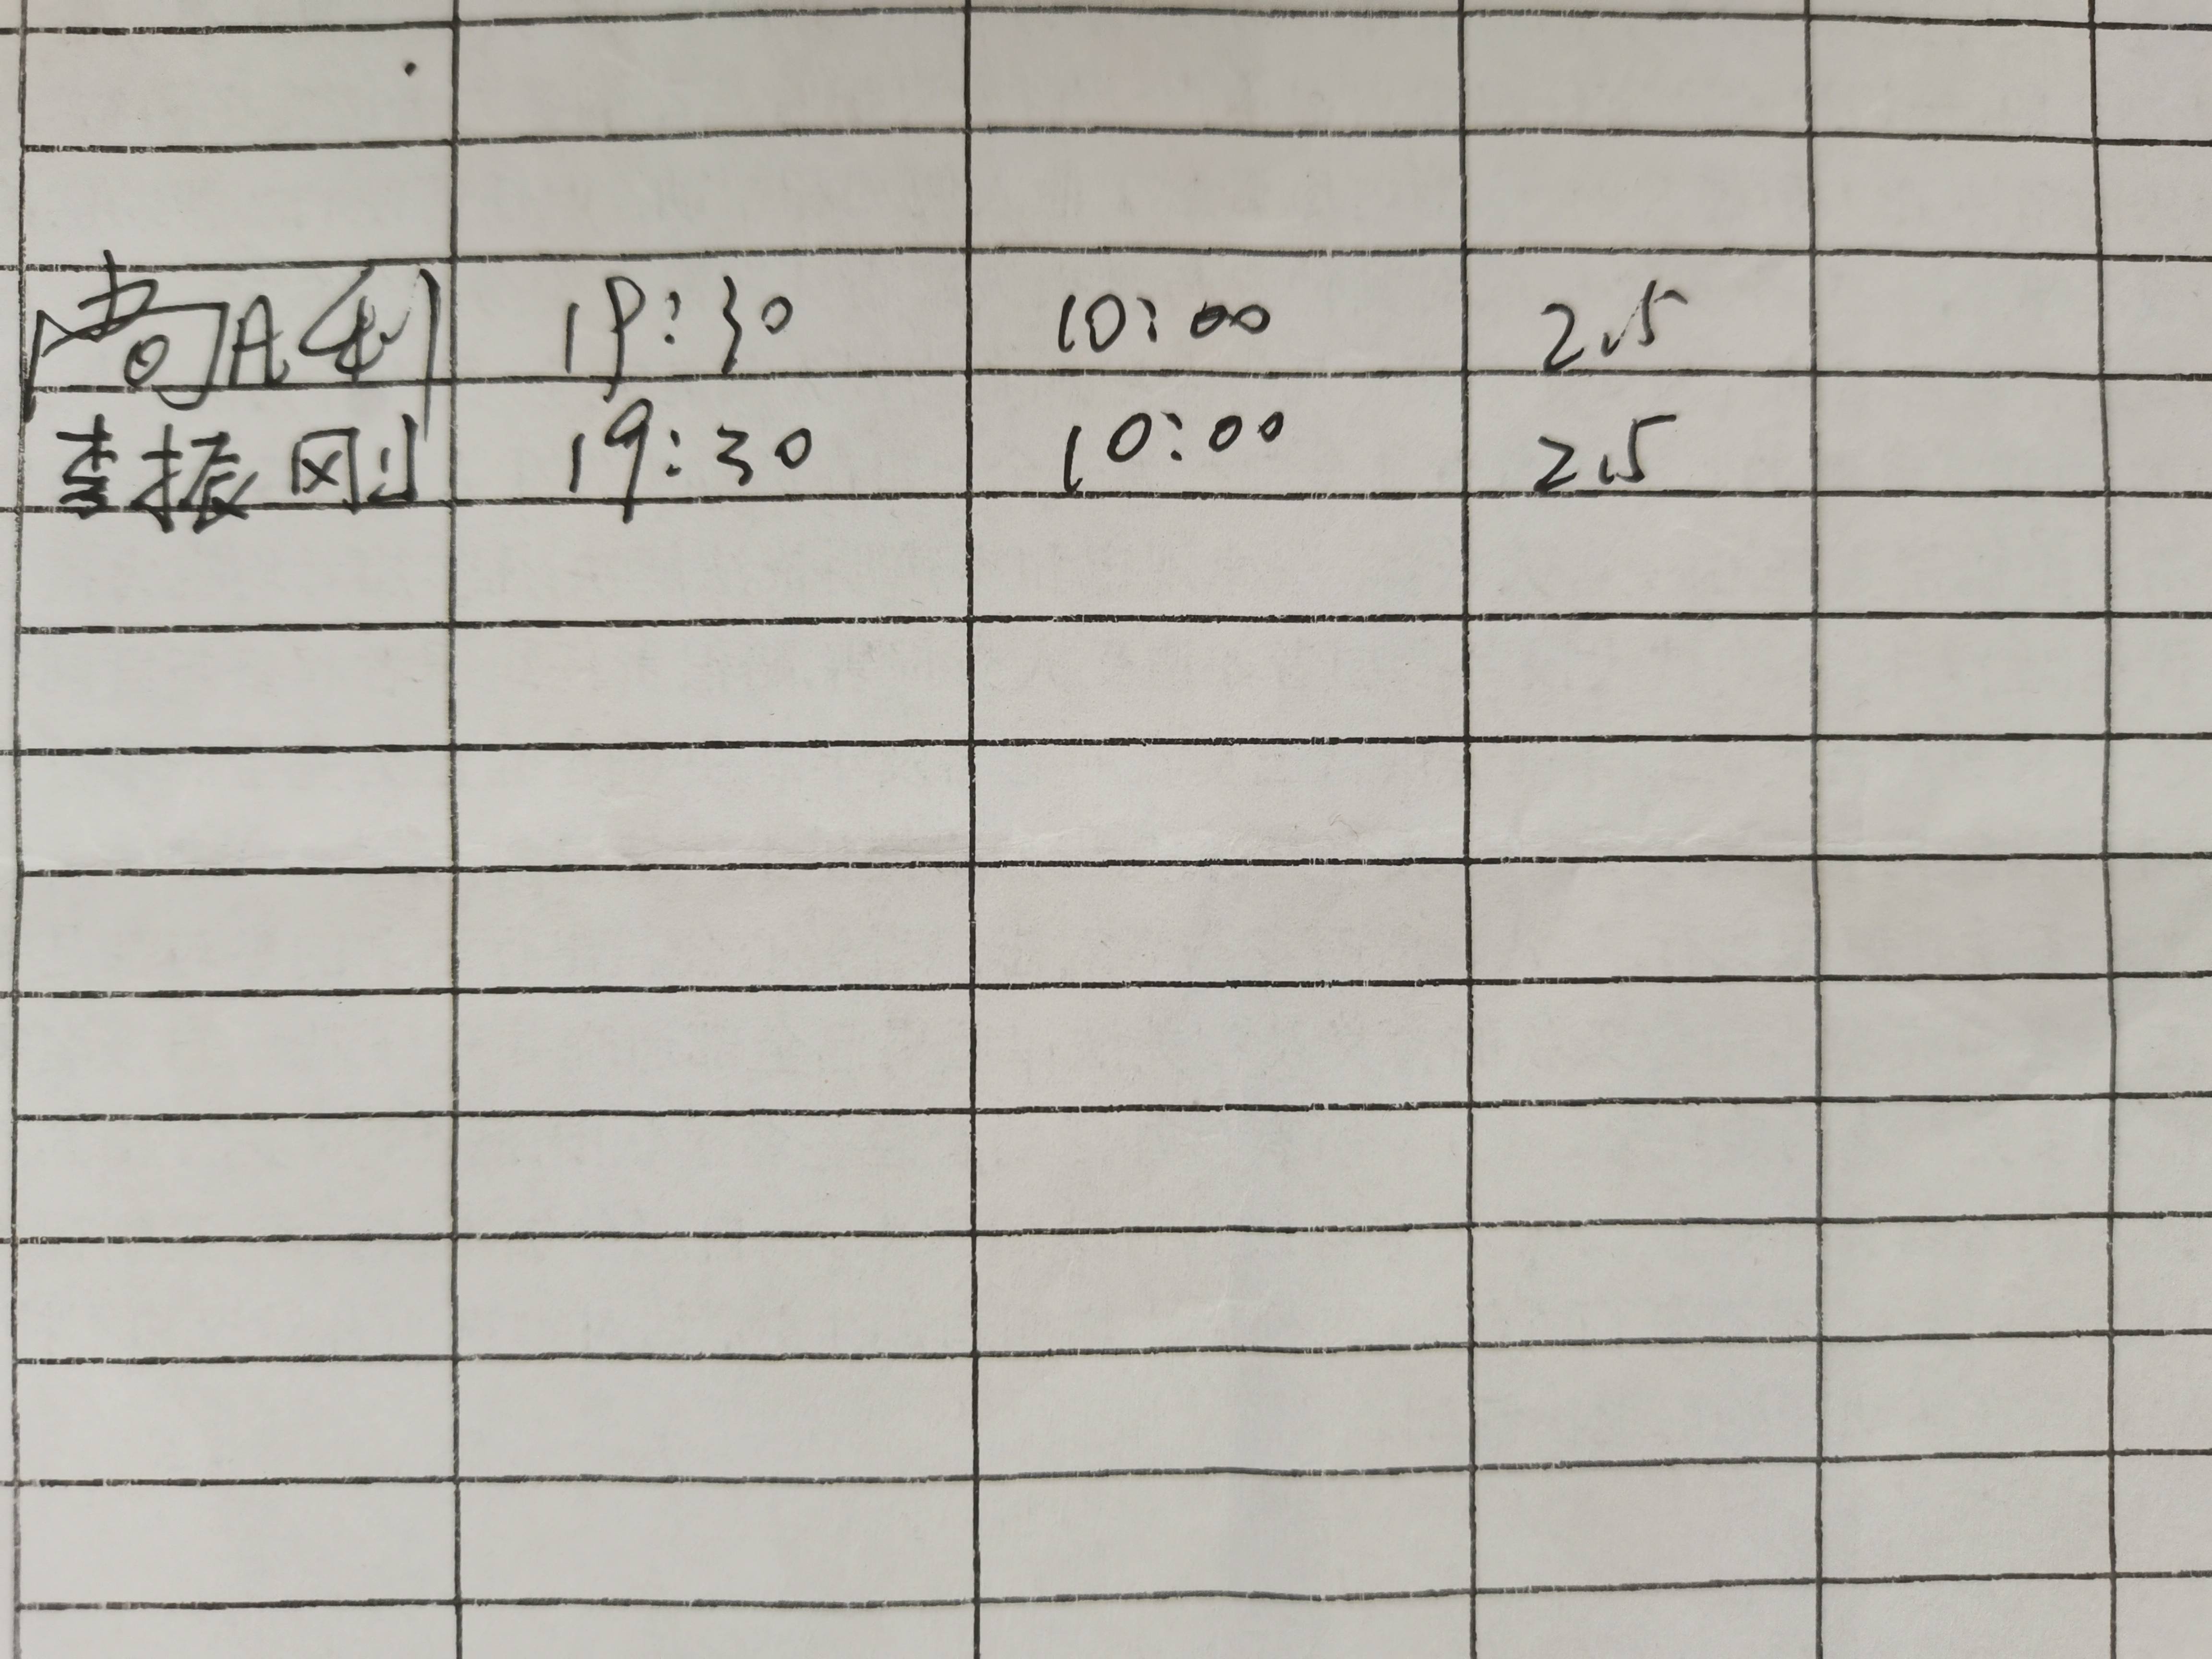 19:30 10:00 2.5
李振刚 19:30 10:00 2.5